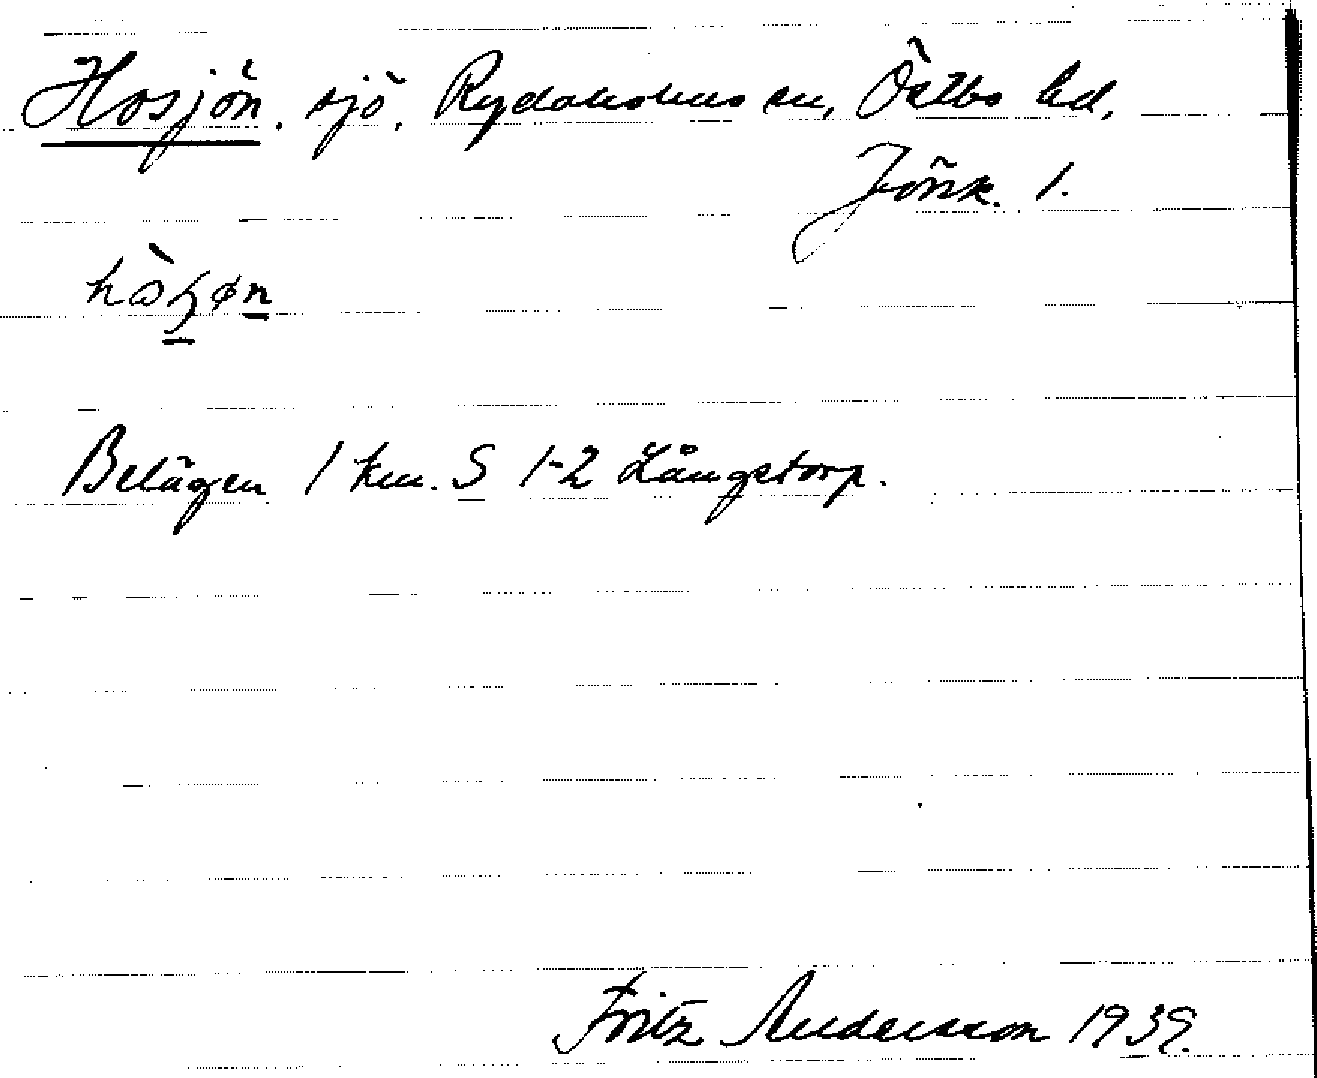 Hosjön, sjö, Rydaholms sn, Östbo hd,
Jönk. l.
Belägen 1 km. S 1-2 Långstorp.
Fritz Andersson 1939.